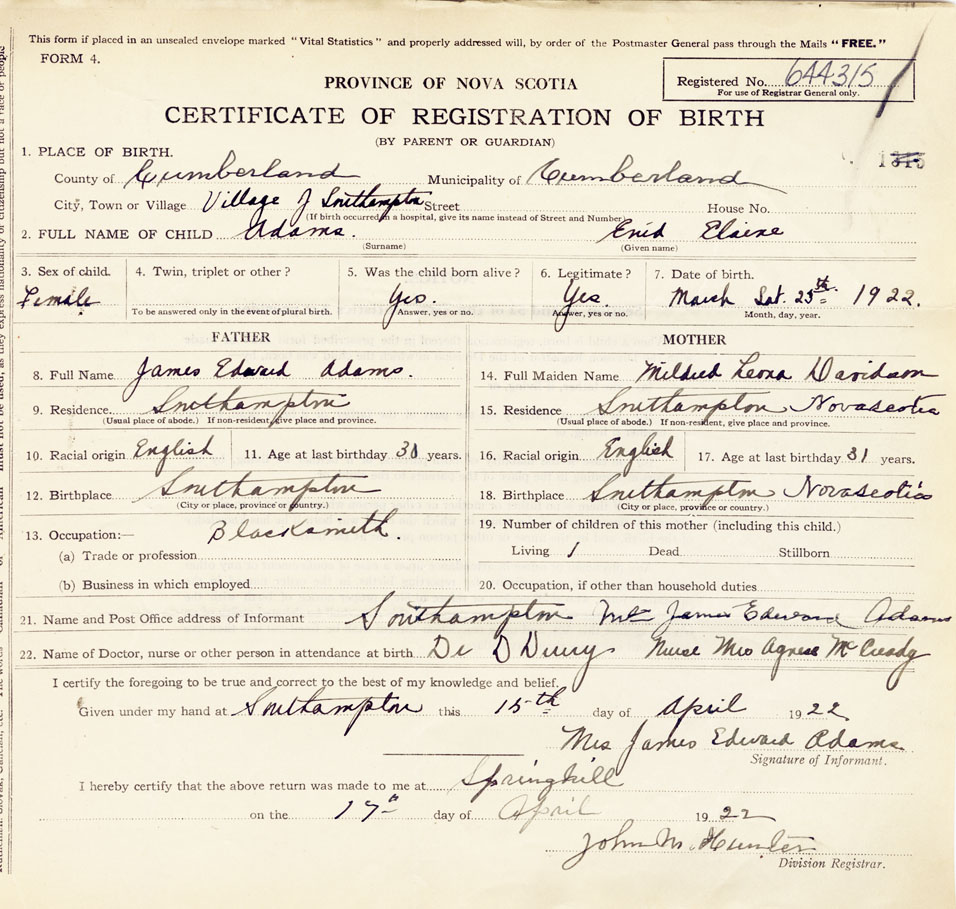 This form if placed in an unsealed envelope marked "Vital Statistics" and properly addressed will, by order of the Postmaster General pass through the Mails "FREE."
FORM 4.
Registered No. 644315
For use of Registrar General only.
PROVINCE OF NOVA SCOTIA
CERTIFICATE OF REGISTRATION OF BIRTH
(BY PARENT OR GUARDIAN)
1. PLACE OF BIRTH.
County of Cumberland Municipality of Cumberland
City, Town or Village Village of Southampton Street House No.
(If birth occurred in a hospital, give its name instead of Street and Number)
2. FULL NAME OF CHILD Adams. Enid Elaine
(Surname) (Given name)
3. Sex of child. 4. Twin, triplet or other? 5. Was the child born alive? 6. Legitimate? 7. Date of birth.
Female Yes. Yes. March Sat. 25th 1922.
To be answered only in the event of plural birth. Answer, yes or no. Answer, yes or no. Month, day, year.
FATHER MOTHER
8. Full Name James Edward Adams. 14. Full Maiden Name Mildred Leona Davidson
9. Residence. Southampton 15. Residence Southampton Novascotia
(Usual place of abode.) If non-resident, give place and province. (Usual place of abode.) If non-resident, give place and province.
10. Racial origin English 11. Age at last birthday 30 years. 16. Racial origin English 17. Age at last birthday 31 years.
12. Birthplace Southampton 18. Birthplace Southampton Novascotia
(City or place, province or country.) (City or place, province or country.)
13. Occupation:— Blacksmith. 19. Number of children of this mother (including this child.)
(a) Trade or profession Living 1 Dead Stillborn
(b) Business in which employed 20. Occupation, if other than household duties
21. Name and Post Office address of Informant Southampton Mrs James Edward Adams
22. Name of Doctor, nurse or other person in attendance at birth Dr D Drury Nurse Mrs Agnese McCready
I certify the foregoing to be true and correct to the best of my knowledge and belief.
Given under my hand at Southampton this 15th day of April 1922
Mrs James Edward Adams
Signature of Informant.
I hereby certify that the above return was made to me at Springhill
on the 17th day of April 1922
John M. Hunter
Division Registrar.